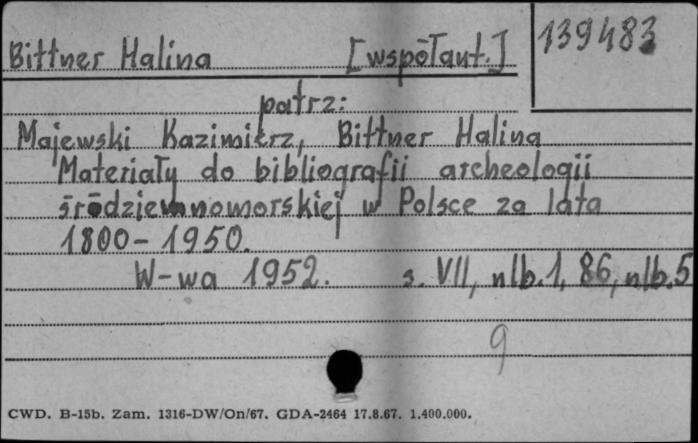 139483
Bittner Halina [współaut.]
patrz:
Majewski Kazimierz, Bittner Halina
Materiały do bibliografii archeologii
śródziemnomorskiej w Polsce za lata
1800-1950.
W-wa 1952. s. VII, nlb.1, 86, nlb.5
9
CWD. B-15b. Zam. 1316-DW/On/67. GDA-2464 17.8.67. 1.400.000.